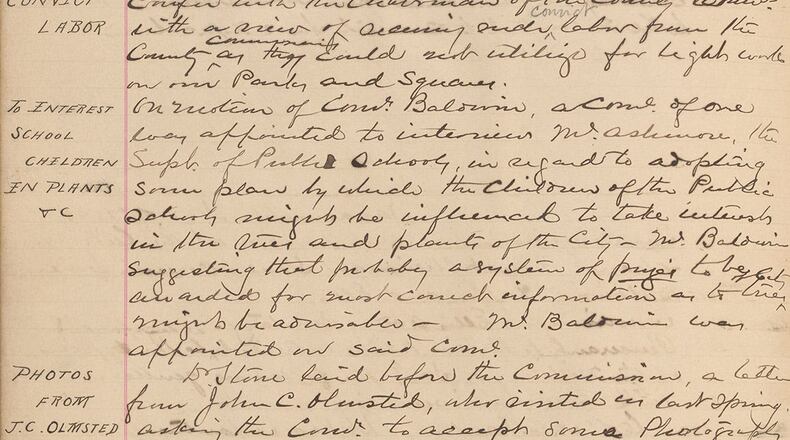 CONVICT
LABOR
Confer with the Chairman of the County
convict
with a view of securing such labor from the
Commissions
County as they could not utilize for light work
on our Parks and Squares.
TO INTEREST
SCHOOL
CHILDREN
IN PLANTS
&C
On motion of Comr. Baldwin, a Come. of one
was appointed to interview Mr. Ashmore, the
Supt. of Public Schools, in regard to adopting
some plan by which the Children of the Public
Schools might be influenced to take interest
in the trees and plants of the City — Mr. Baldwin
suggesting that probably a system of prizes to be
awarded for most correct information as to trees
might be advisable — Mr. Baldwin was
appointed on said Come.
PHOTOS
FROM
J.C. OLMSTED
Dr. Stone laid before the Commission, a letter
from John C. Olmsted, who visited us last Spring,
asking the Comr. to accept some Photographs